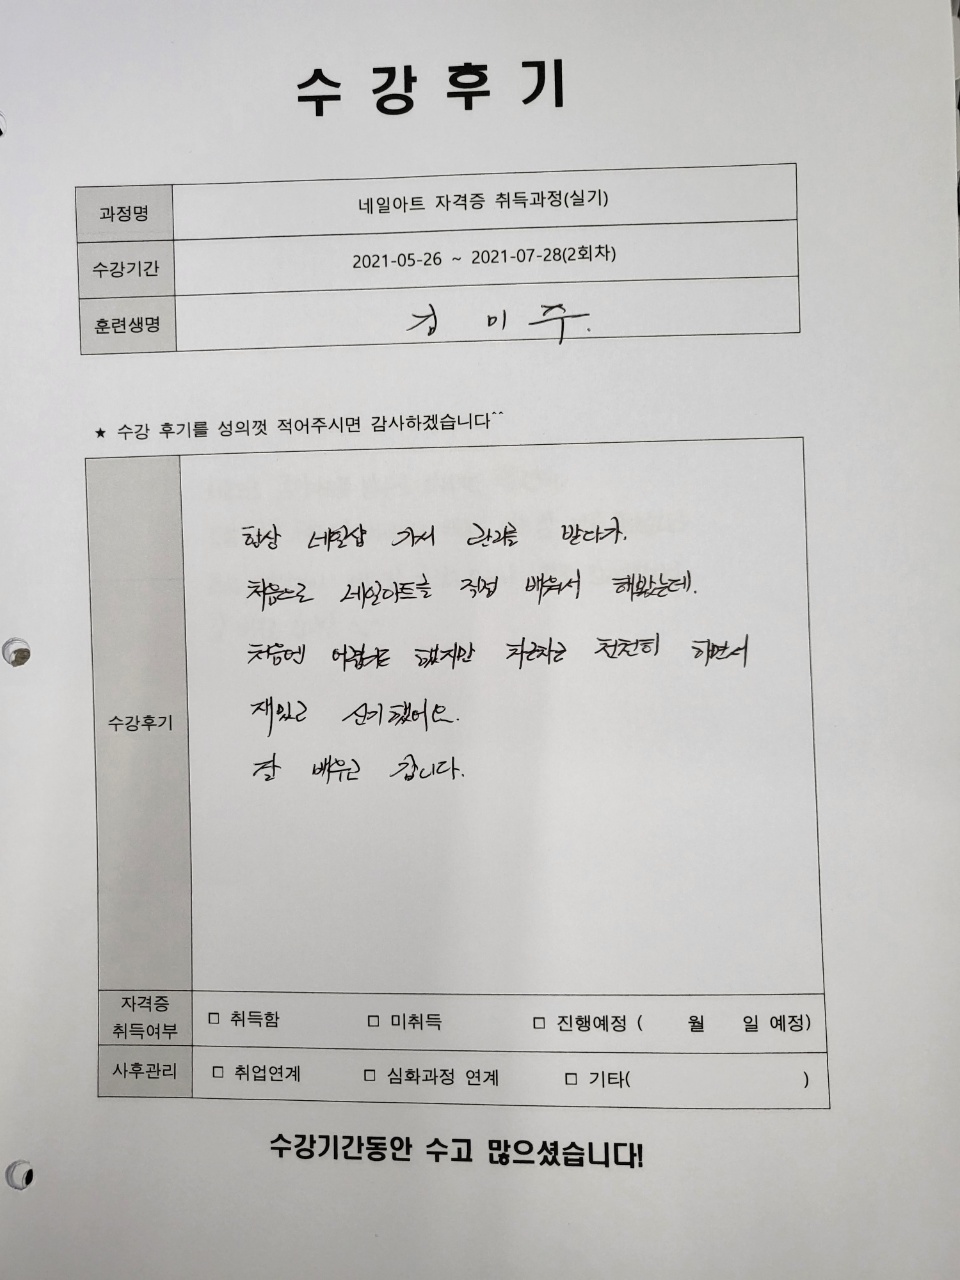 수 강 후 기
과정명 네일아트 자격증 취득과정(실기)
수강기간 2021-05-26 ~ 2021-07-28(2회차)
훈련생명 김 미 주.
★ 수강 후기를 성의껏 적어주시면 감사하겠습니다^^
수강후기
항상 네일샵 가서 관리를 받다가.
처음으로 네일아트를 직접 배워서 해봤는데.
처음엔 어렵기도 했지만 차근차근 천천히 하면서
재밌고 신기했어요.
잘 배우고 갑니다.
자격증 취득여부 □ 취득함 □ 미취득 □ 진행예정 ( 월 일 예정)
사후관리 □ 취업연계 □ 심화과정 연계 □ 기타( )
수강기간동안 수고 많으셨습니다!